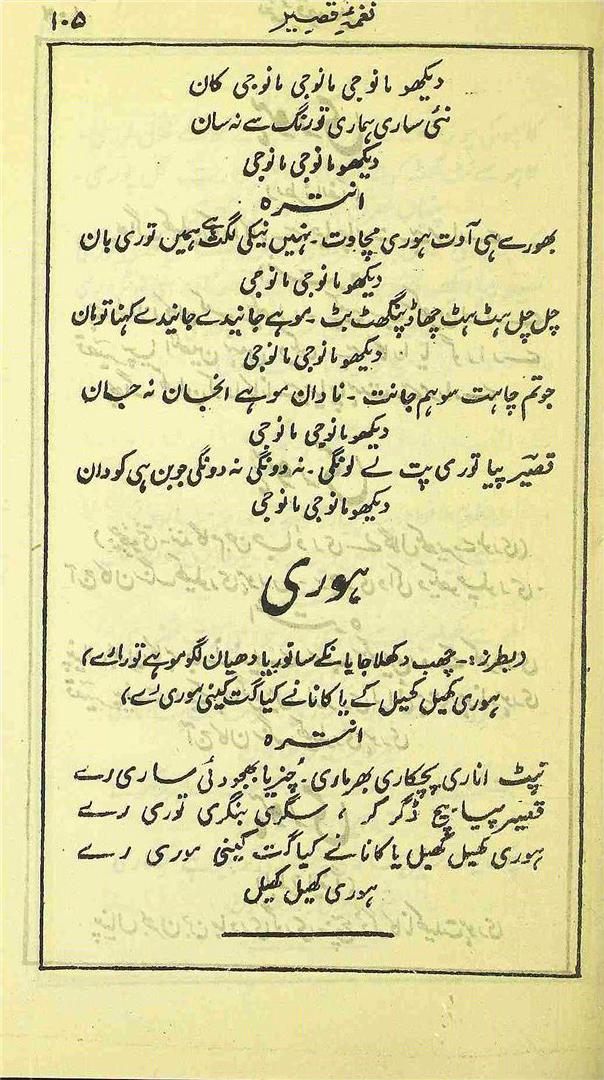 ۱۰۵
نغمۂ قصیر
دیکھو مانوجی مانوجی مانوجی کان
نئی ساری ہماری تو رنگ سے نہ سان
دیکھو مانوجی مانوجی
انترہ
بھورے ہی آوت ہوری مچاوت ۔ نہیں نیکی لگت ہے ہمیں توری بان
دیکھو مانوجی مانوجی
چل چل ہٹ ہٹ چھاڈ پنگھٹ بٹ ۔ موہے جانیدے جانیدے کہنا تو مان
دیکھو مانوجی مانوجی
جو تم چاہت سو ہم جانت ۔ نادان موہے انجان نہ جان
دیکھو مانوجی مانوجی
قصیر پیا توری پت لے لونگی ۔ نہ دونگی نہ دونگی جوبن ہی کو دان
دیکھو مانوجی مانوجی
ہوری
(بطرز :۔ چھب دکھلا جا بانکے سانوریا دھیان لگو موہے تورا رے)
ہوری کھیل کھیل کے یا کانا نے کیا گت کینی موری رے
انترہ
نپٹ اناری پچکاری بھر ماری ۔ چنریا بھجو دئی ساری رے
قصیر پیا بیچ ڈگر کر ، سگری بنگری توری رے
ہوری کھیل کھیل یا کانا نے کیا گت کینی موری رے
ہوری کھیل کھیل